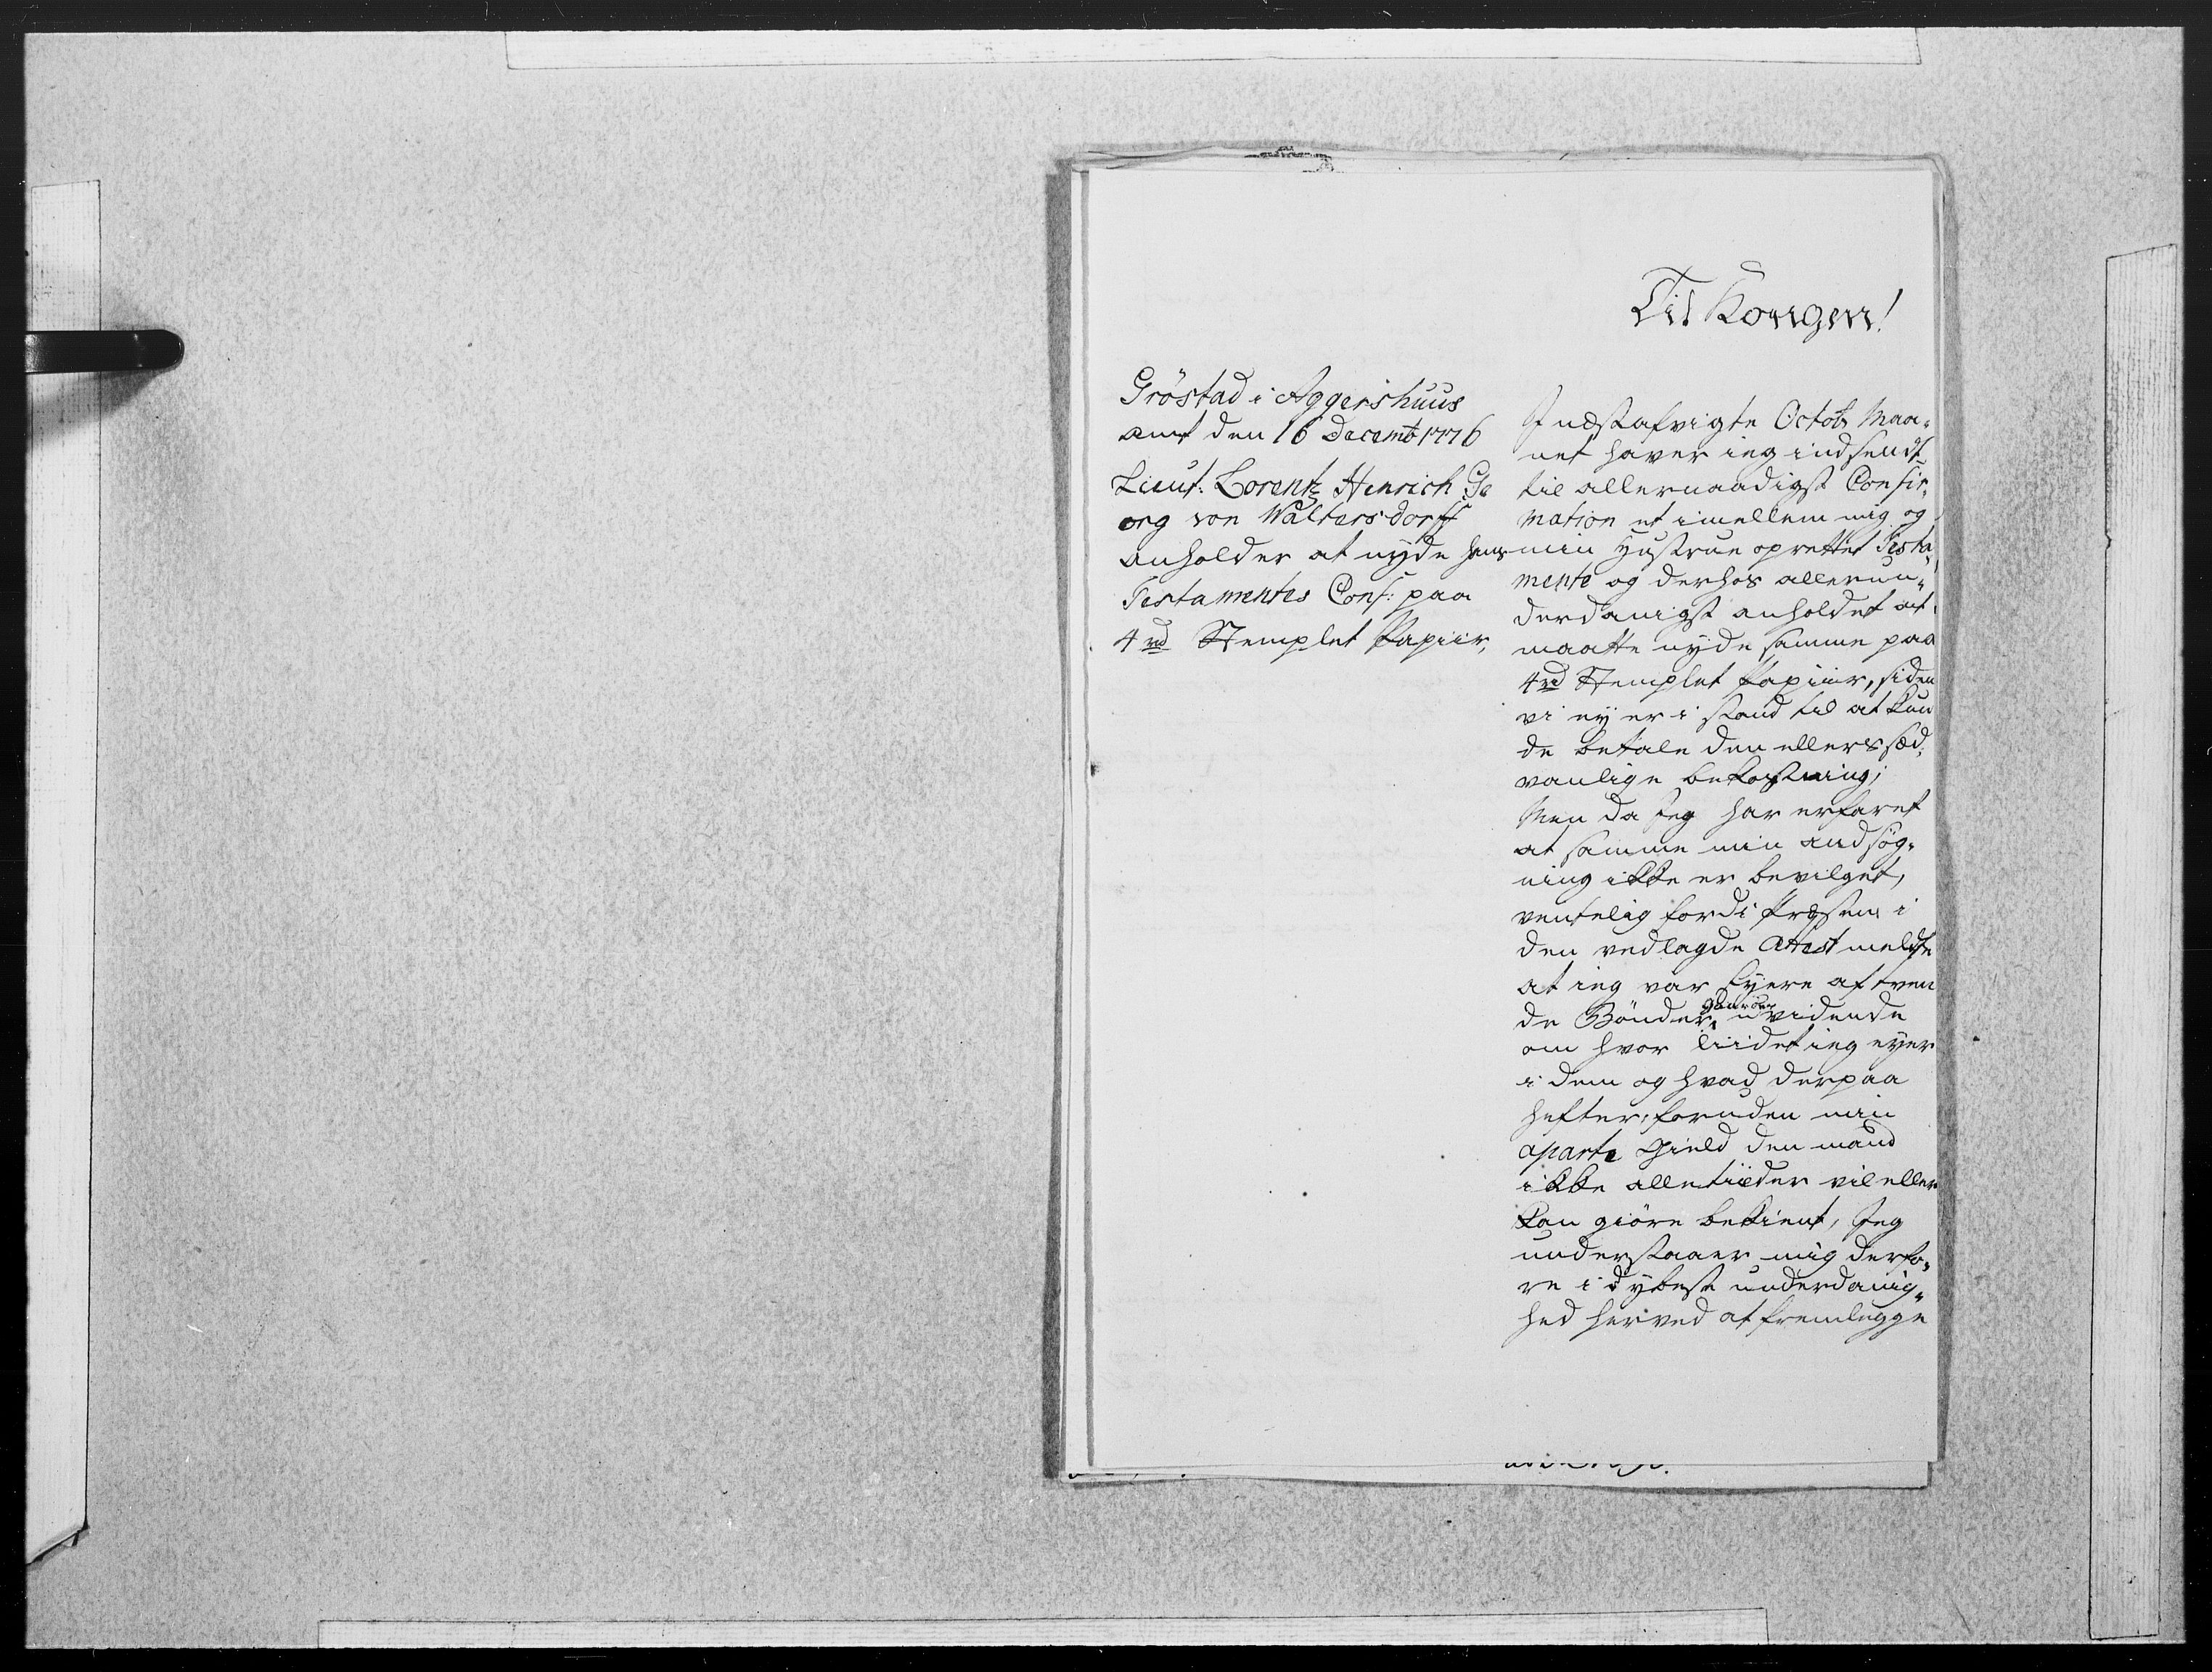 Til Kongen!
Gröstad i Aggershuus
amt den 16 Decembr 1776
Lieut: Lorentz Henrich Ge
org von Waltersdorff
anholder at nyde hans
Testamentes Conf: paa
4 rd Stemplet Papiir,
I næstafvigte Octobr Maa-
net haver ieg indsendt
til allernaadigst Confir-
mation et imellem mig og
min Hustrue oprettet Testa-
mente og derhos allerun-
derdanigst anholdet at
maatte nyde samme paa
4 rd Stemplet Papiir, siden
vi ey er i stand til at kun
de betale den ellers sæd-
vanlige bekostning;
Men da Jeg har erfaret
at samme min andsög-
ning ikke er bevilget,
ventelig fordi Præsten i
den vedlagde Attest meldte
at ieg var Eyere af tven
de Bönder gaarder uvidende
om hvor liidet ieg eyer
i dem og hvad derpaa
hefter, foruden min
aparte Gield den mand
ikke alletiider vil eller
kan giöre bekient, Jeg
understaaer mig derfo-
re i dybeste underdanig-
hed herved at fremlegge